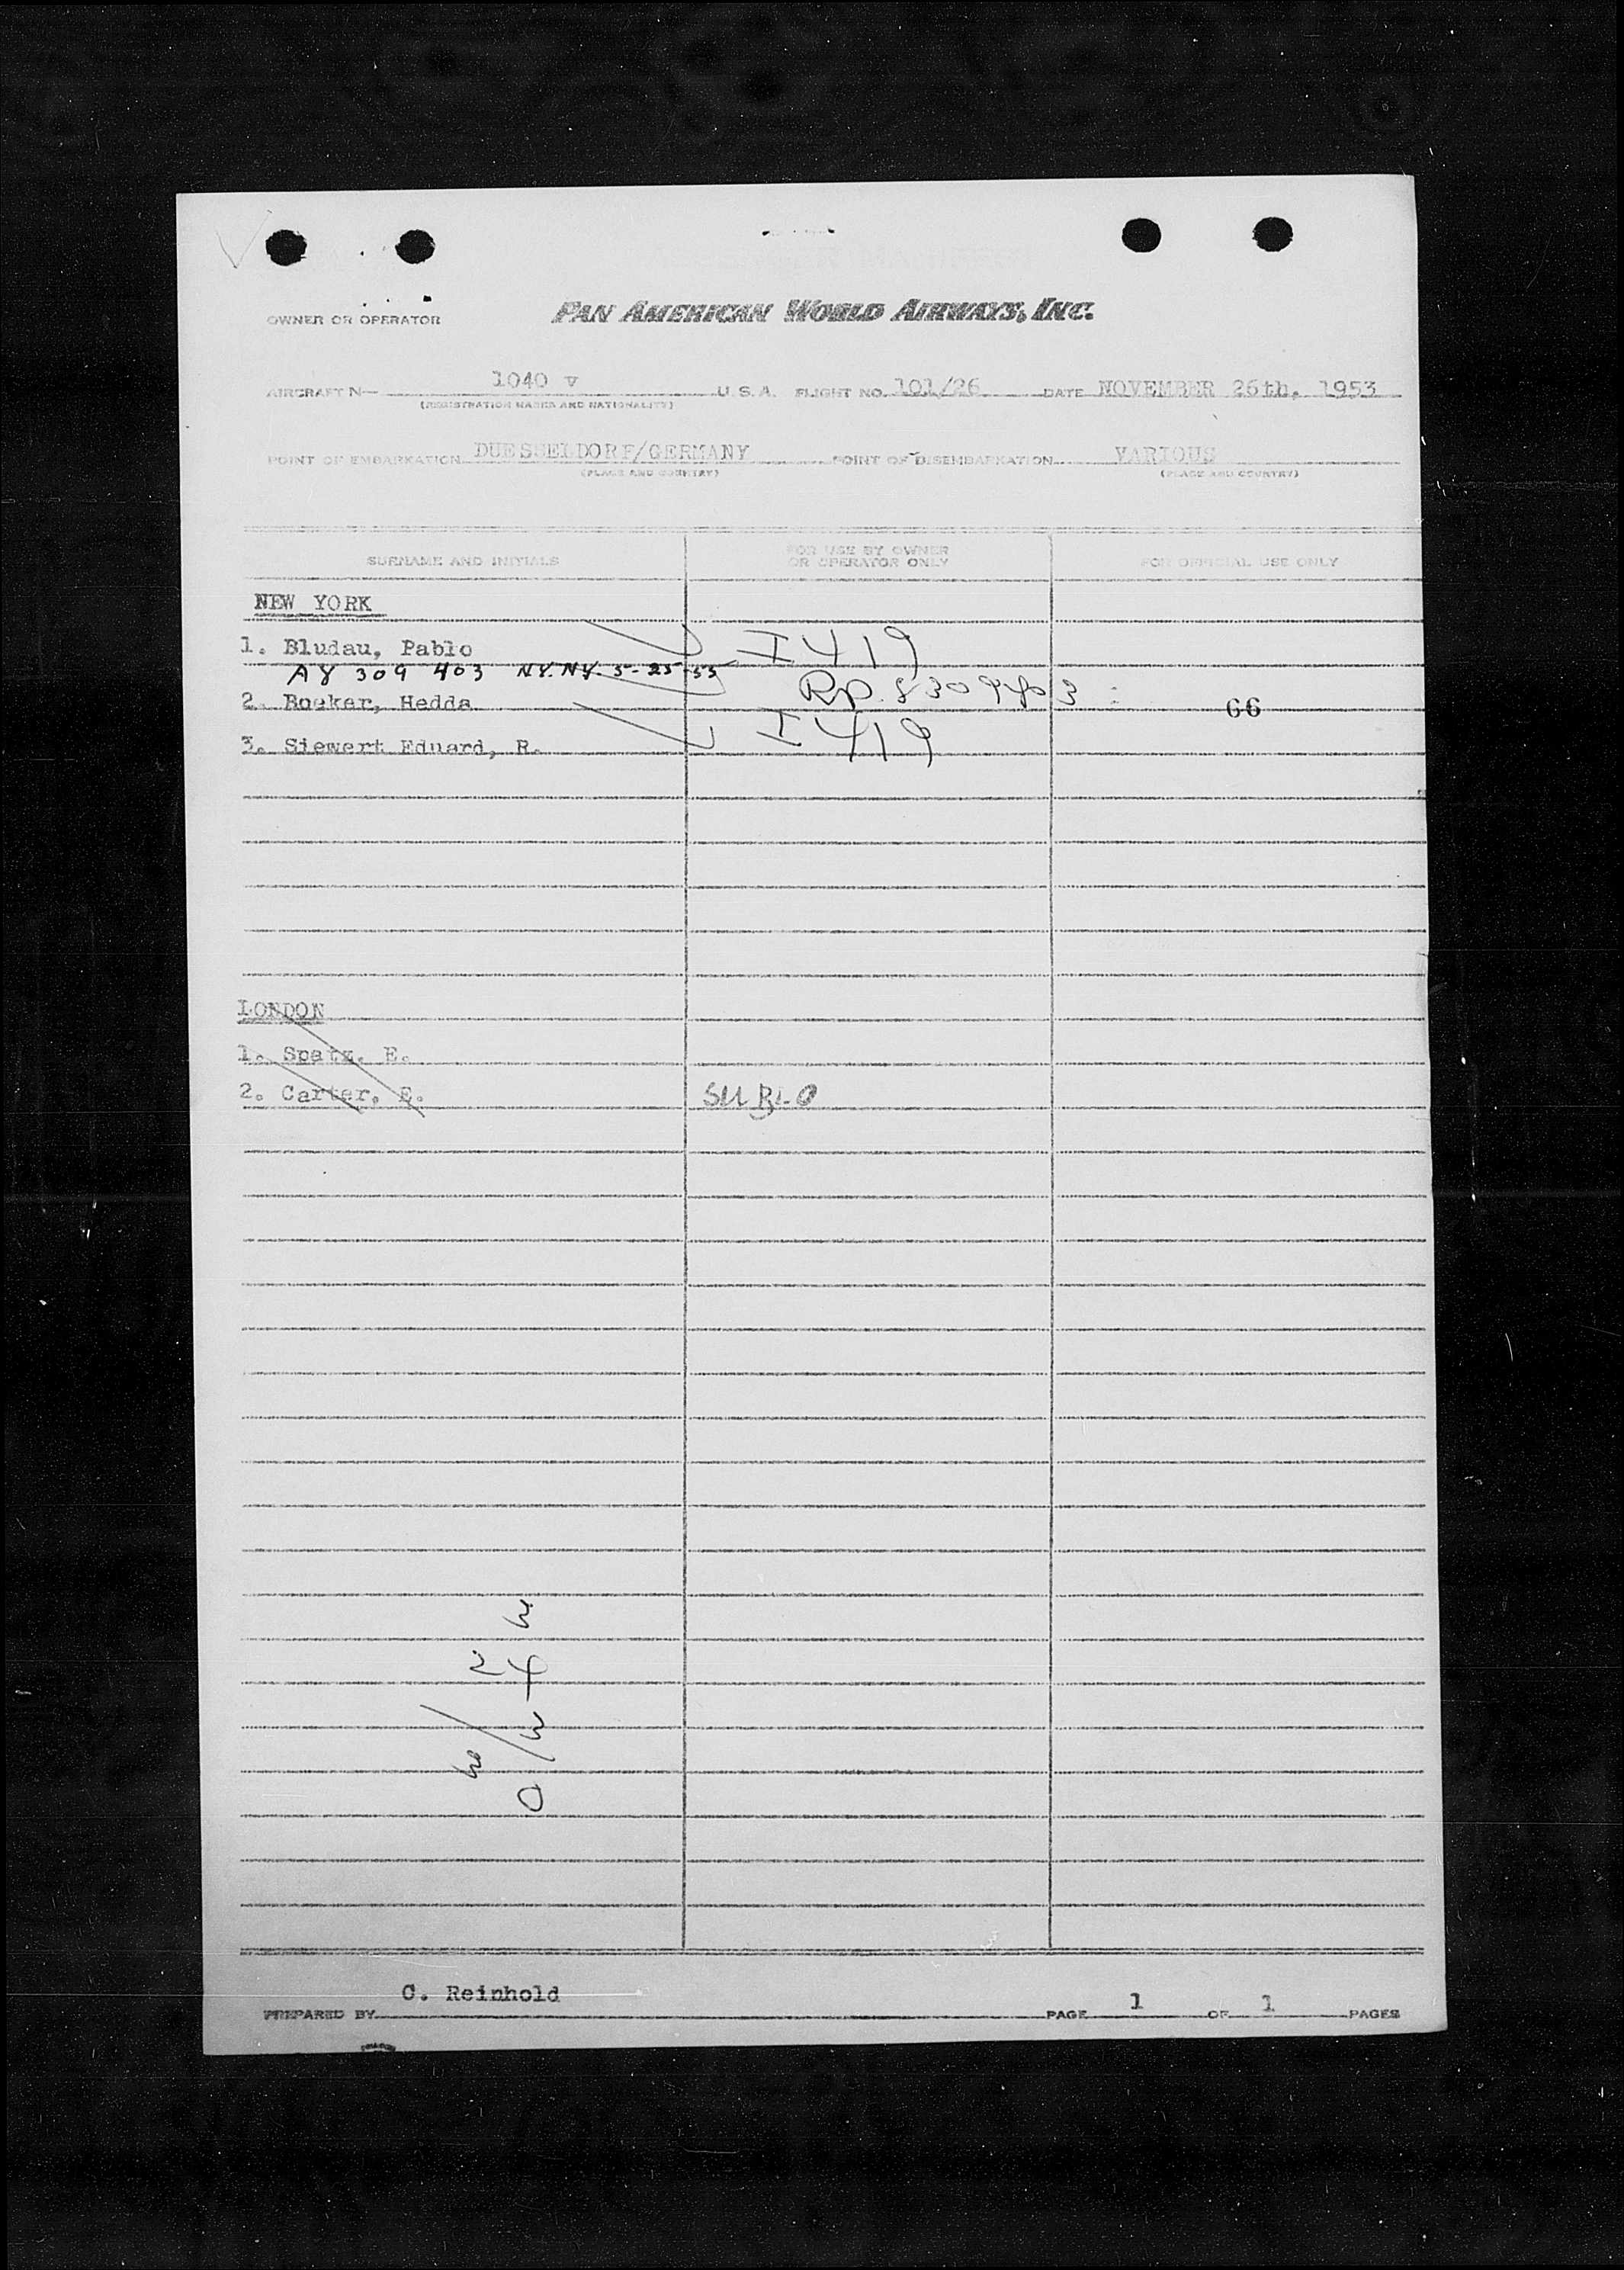 OWNER OR OPERATOR PAN AMERICAN WORLD AIRWAYS, INC.
AIRCRAFT N— 1040 V U. S. A. FLIGHT NO. 101/26 DATE NOVEMBER 26th, 1953
(REGISTRATION MARKS AND NATIONALITY)
POINT OF EMBARKATION DUESSELDORF/GERMANY POINT OF DISEMBARKATION VARIOUS
(PLACE AND COUNTRY) (PLACE AND COUNTRY)
SURNAME AND INITIALS FOR USE BY OWNER OR OPERATOR ONLY FOR OFFICIAL USE ONLY
NEW YORK
1. Bludau, Pablo I 419
A8 309 403 N.Y. N.Y. 5-25-53
2. Boeker, Hedda Rp. 8309403 66
3. Siewert Eduard, R. I 419
LONDON
1. Spatz, E.
2. Carter, E.
C. Reinhold
PREPARED BY PAGE 1 OF 1 PAGES